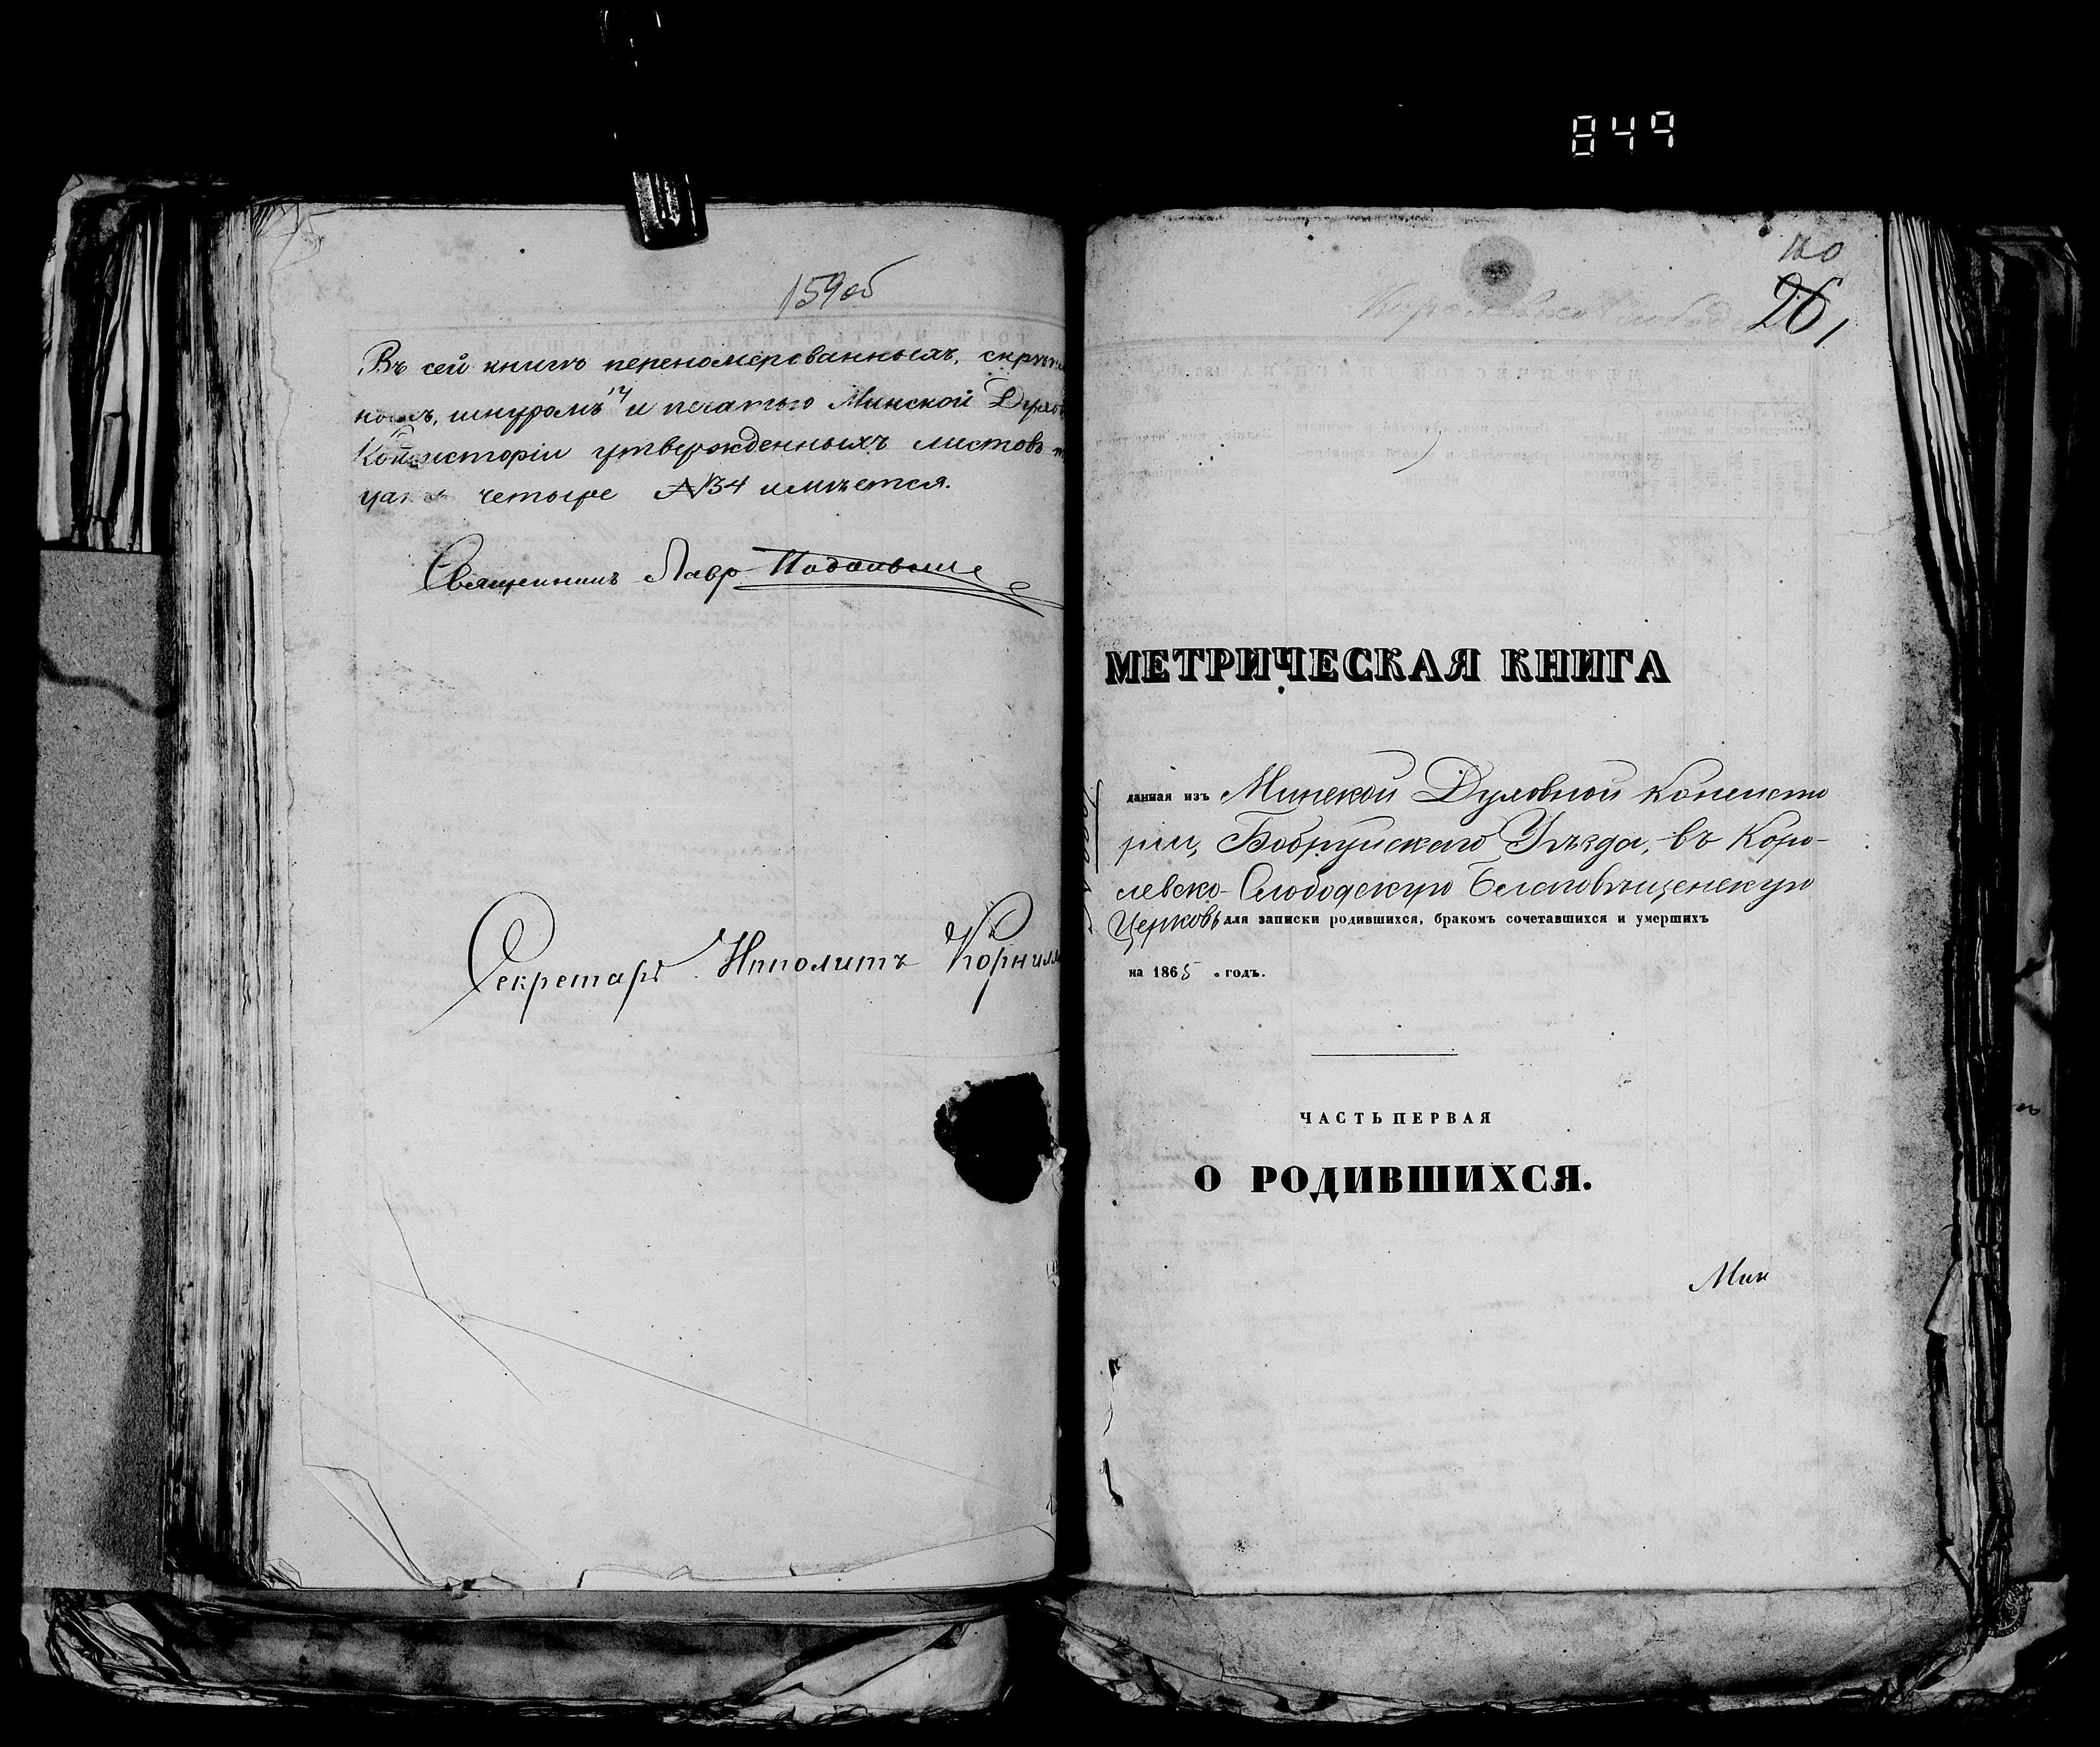 849
159об
Въ сей книгѣ переномерованныхъ, скрѣпле
ныхъ, шнуромъ и печатью Минской Духов
Консисторіи утвержденныхъ листовъ
четыре №34 имѣется.
Священникъ Лавр
Секретарь Ипполитъ Корнил
160
26
МЕТРИЧЕСКАЯ КНИГА
данная изъ Минской Духовной Консисто
ріи, Бобруйскаго Уѣзда, въ Коро-
левско-Слободскую Благовѣщенскую
Церковь для записки родившихся, бракомъ сочетавшихся и умершихъ
на 1865 годъ.
ЧАСТЬ ПЕРВАЯ
О РОДИВШИХСЯ.
Мин